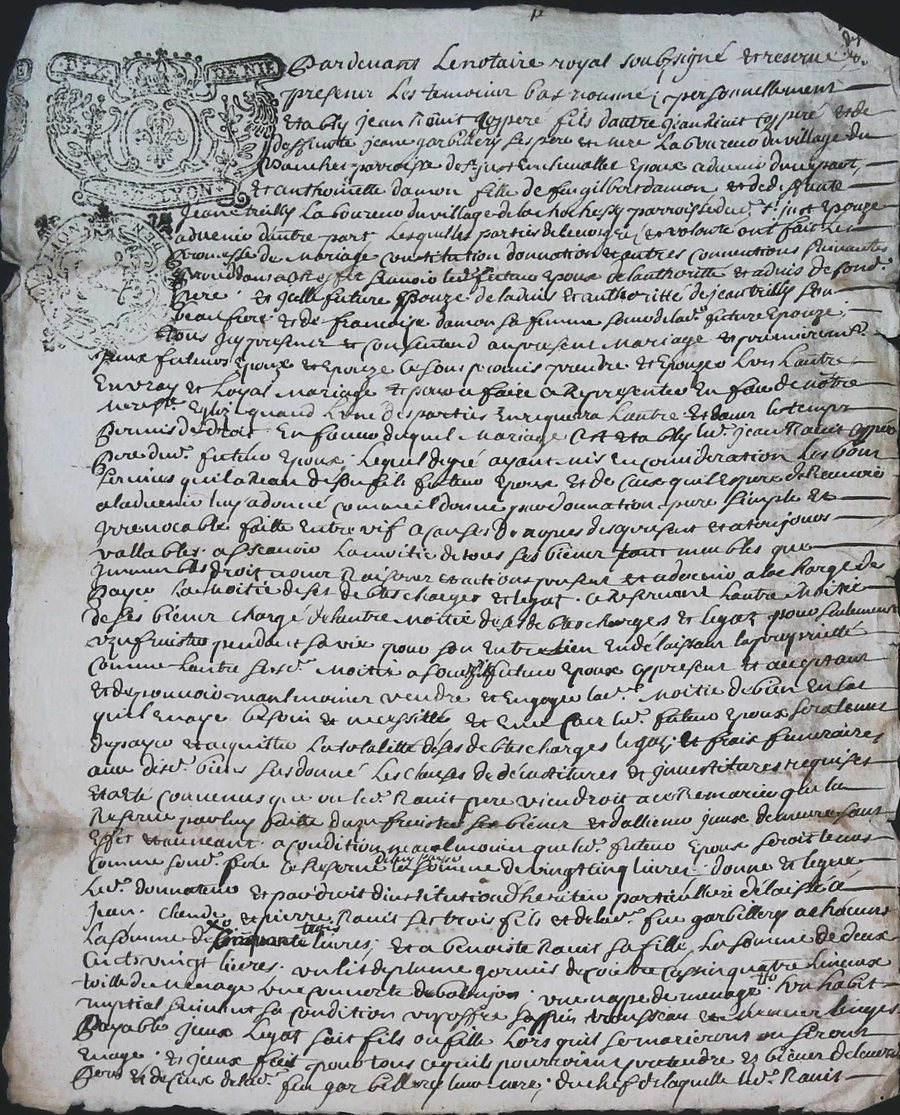 DIX DENIE
LYON
Pardevant Le notaire royal soubsigné et reservé
presens Les temoins bas nommé, personnellement
Estably jean Ravit fils dautre jean Ravit et de
deffunte jeane garbillery ses pere et mere Laboureur du village du
parroisse de st just En chevallet Epoux advenir dune part,
Et anthoinette damon fille de feu gilbert damon et de deffunte
Jeane treilly Laboureur du village de la parroisse dud. st just Epouze
advenir dautre part Lesquelles parties de leur gré et volonté ont fait les
promesse de Mariage institution donnation et autres conventions suivantes
scavoir led. futur Epoux de lauthoritte et advis de sond.
Pere et jcelle future Epouze de ladvis et authoritté de jean treilly son
beau frere et de francoise damon sa femme sœur de lad. future Epouze
tous jcy present et consentand au present Mariage et premierement
jceux futeurs Epoux et Epouze Ce sont promis prendre et Epouzer Lun Lautre
En vray et Loyal Mariage et pour ce faire ce Representer En face de notre
mere ste Eglize quand Lune des parties En requerra Lautre Et dans le temps
Permis de droit. En faveur duquel Mariage Cest Estably led. jean Ravit
Pere dud. futeur Epoux, Lequel de gré ayant mis En consideration Les bons
services quil a de son fils futeur Epoux et de Ceux quil Espere de Recevoir
a ladvenir luy a donné comme il donne par donnation pure simple et
jrrevocable faitte Entre vif a cause de nopces des present et a toujours
vallables. a scavoir La moitié de tous ses biens tant meubles que
jmmeubles droit noms Raisons et actions present et advenir a la charge de
Payer La moitié de ses debtes charges et legat. ce Reservant Lautre Moitié
de ses biens chargé de lautre moitié de ses debtes charges et legaz pour seulement
Uzufruister pendant sa vie pour son Entretien En délaissant la proprietté
Comme Lautre susd. Moitié a sond. fils futeur Epoux cy present et acceptant
et de pouvoir neanlmoins vendre et Engager lad. Moitié de bien En cas
quil En aye besoin et necessitté et En ce Cas led. futeur Epoux sera tenu
de payer et acquitter La totalitté de ses debtes charges legaz et frais funeraires
aux susd. biens sus donné Les Clauses de devestitures et jnvestitures requises
Et a esté Convenus que ou led. Ravit pere viendroit a ce Remarier que la
Reserve par luy faitte duzufruister ses biens et dalliener jceux demeure sans
Effet et a neant a condition neanlmoins que led. futeur Epoux seroit tenus
Comme sond. Pere ce Reserve la somme de vingt cinq livres. donne et legue
Led. donnateur et par droit dinstitution dheritier particulliere délaisse a
jean. Claude et pierre Ravit ses trois fils et de lad. feue garbillery a chacuns
La somme de livres, et a benoiste Ravit sa fille La somme de deux
Cents vingt livres. un lit de plume garnis de coitre Cassin quatre linceux
toille de menage une couverte de une nappe de menage. un habit
nuptial suivant sa condition un coffre sappin et menus linges
Payable jceux Legat soit fils ou fille Lors quil se marieront ou seront
En age. et jceux pour tous ce quils pourroint pretendre et biens de leurd.
Pere et de ceux de lad. feue garbillery leur mere, du chef de laquelle led. Ravit